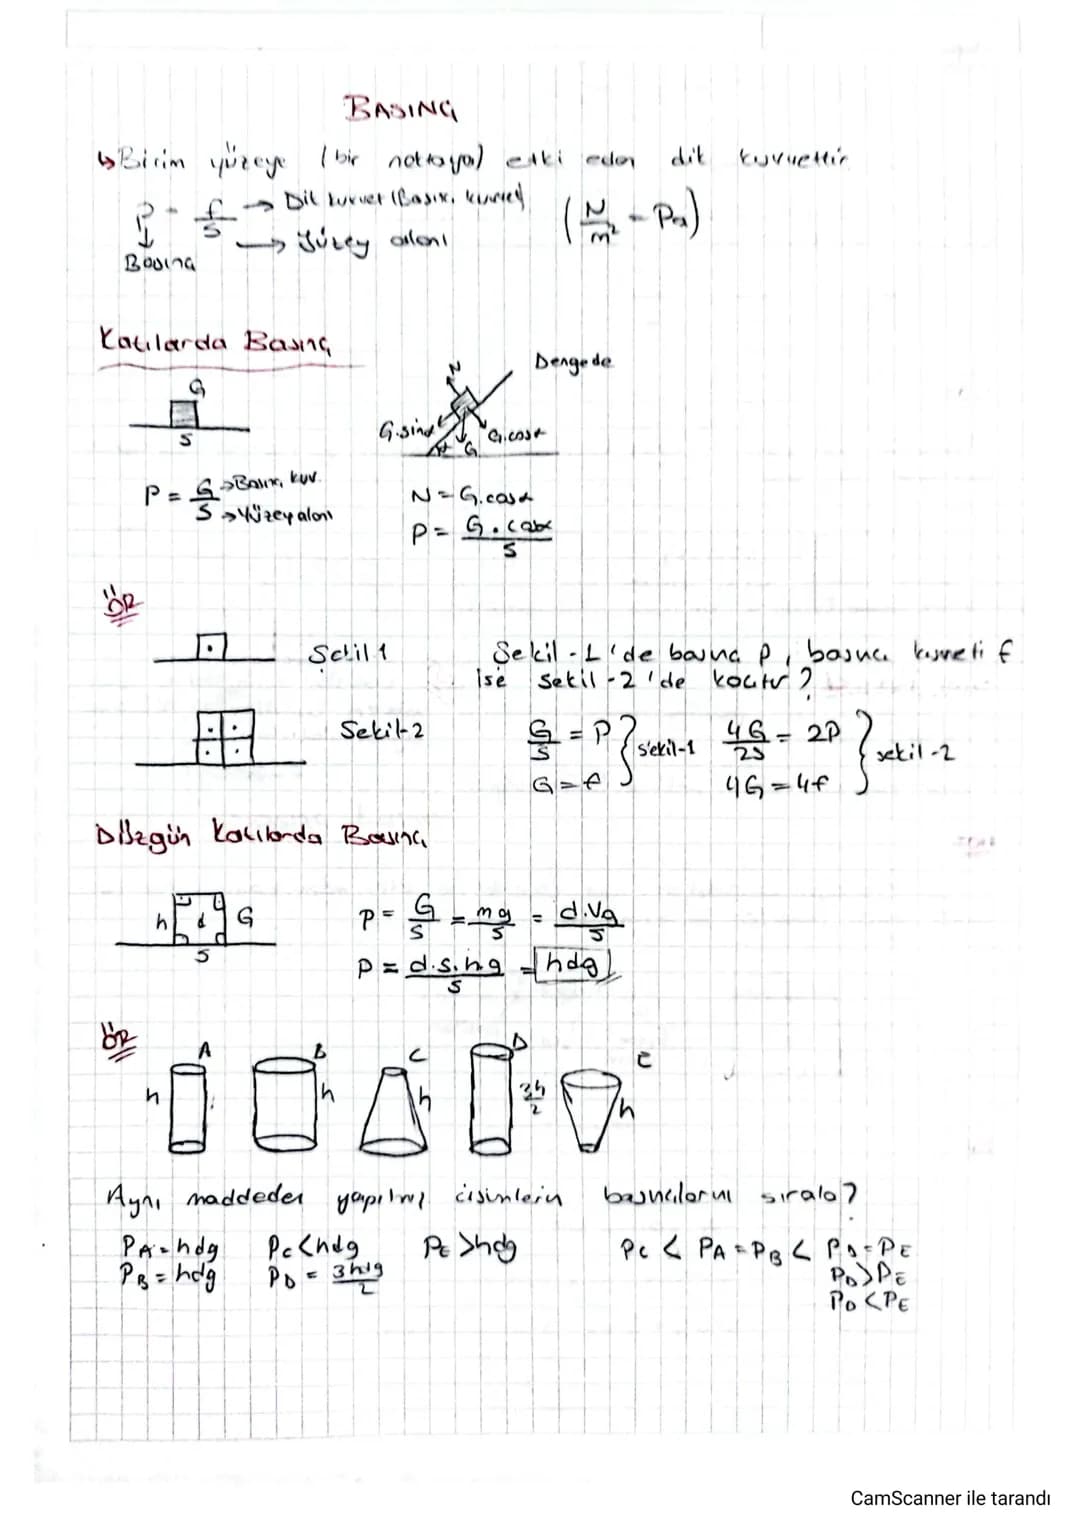 BASINÇ
↳ Birim yüzeye (bir noktaya) etki eden dik kuvvettir
P = f/s → Dik kuvvet (Basınç kuvveti) (N/m² = Pa)
→ Yüzey alanı
↓
Basınç
Katılarda Basınç
G
S
P = G/S → Basınç kuv.
→ Yüzey alanı
Dengede
N
G.sinα
G.cosα
α G
N = G.cosα
P = G.cosα/S
ÖR
Şekil 1
Şekil-1'de basınç P, basınç kuvveti f
ise şekil-2'de kaçtır?
Şekil-2
G/S = P } şekil-1
G = f
4G/2S = 2P } şekil-2
4G = 4f
Düzgün Katılarda Basınç
h d G
S
P = G/S = mg/S = d.Vg/S
P = d.s.h.g/S = hdg
ÖR
A B C D E
h h h 3h/2 h
Aynı maddeden yapılmış cisimlerin basınçlarını sırala?
PA = hdg PC < hdg PE > hdg PC < PA = PB < PD = PE
PB = hdg PD = 3hdg/2 PD > PE
PD < PE
CamScanner ile tarandı